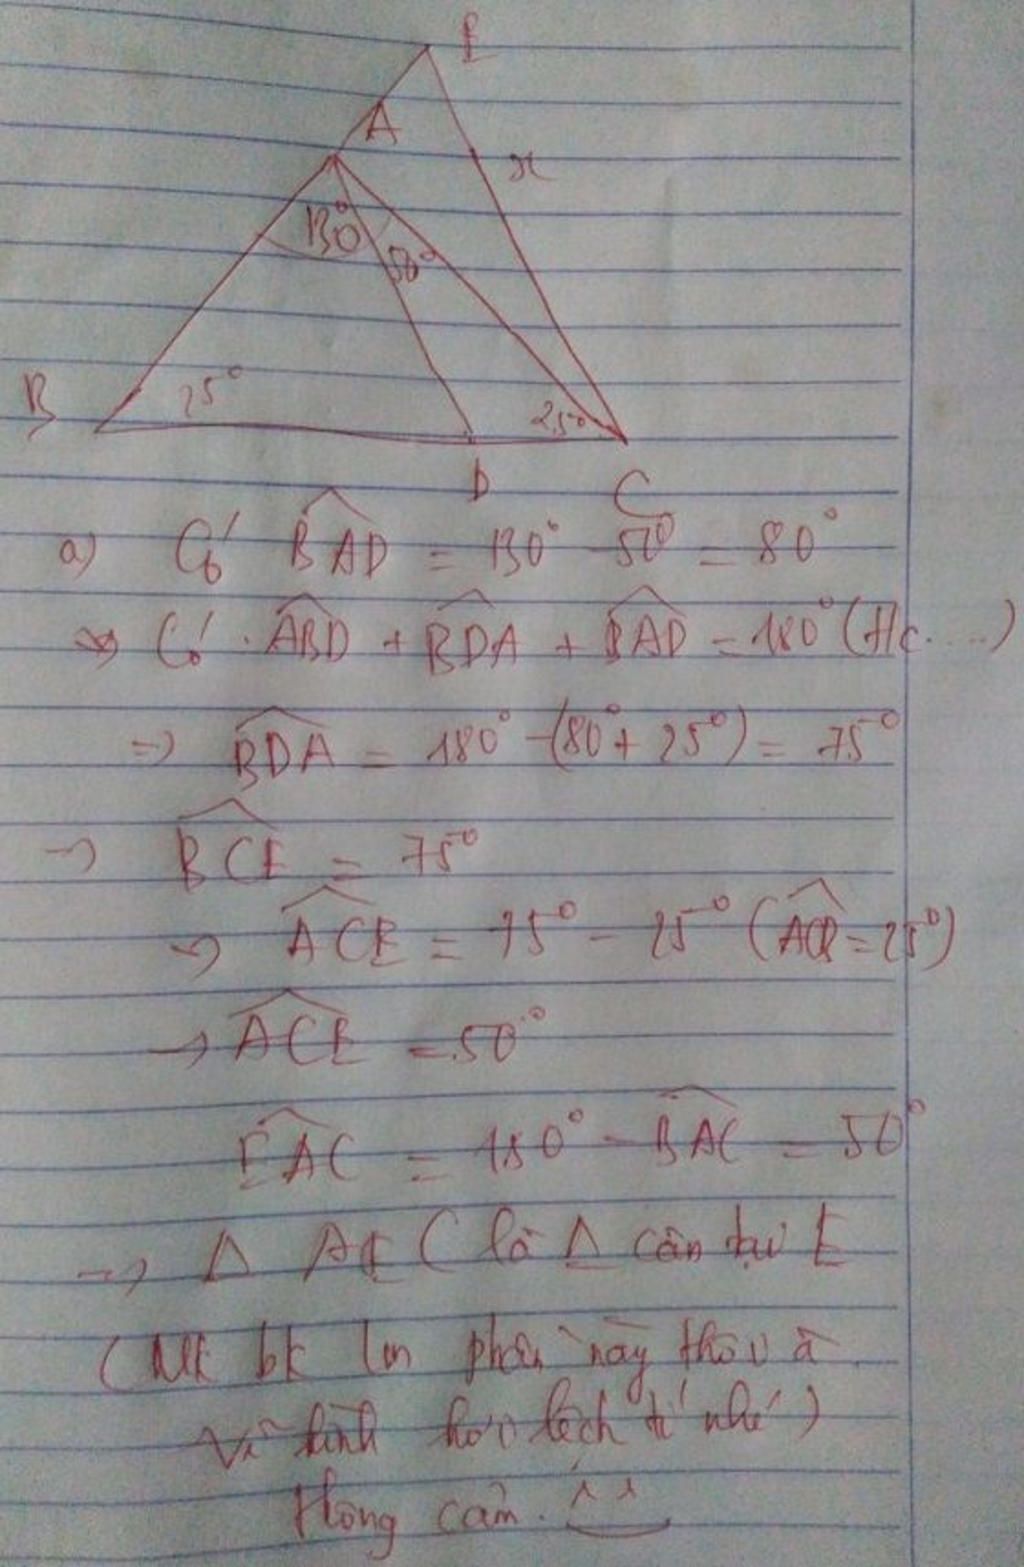 E
A
x
130°
50°
B
25°
25°
D
C
a) Có BAD = 130° - 50° = 80°
=> Có ABD + BDA + BAD = 180° (t/c ...)
=> BDA = 180° - (80° + 25°) = 75°
-> BCE = 75°
=> ACE = 75° - 25° (ACB = 25°)
-> ACE = 50°
EAC = 180° - BAC = 50°
-> Δ AEC là Δ cân tại E
(Mk bk lm phần này thôi à
Vẽ hình hơi lệch tí nhé)
thông cảm. ^^